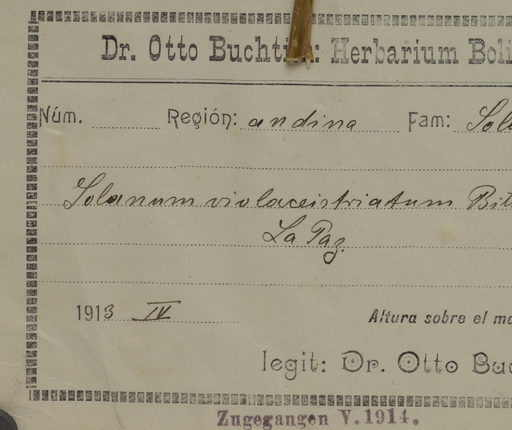 Dr. Otto Buchtien: Herbarium Boli
Núm. Región: andina Fam: Sola
Solanum violaceistriatum Bitt
La Paz
1913 IV Altura sobre el ma
legit: Dr. Otto Buc
Zugegangen V. 1914.